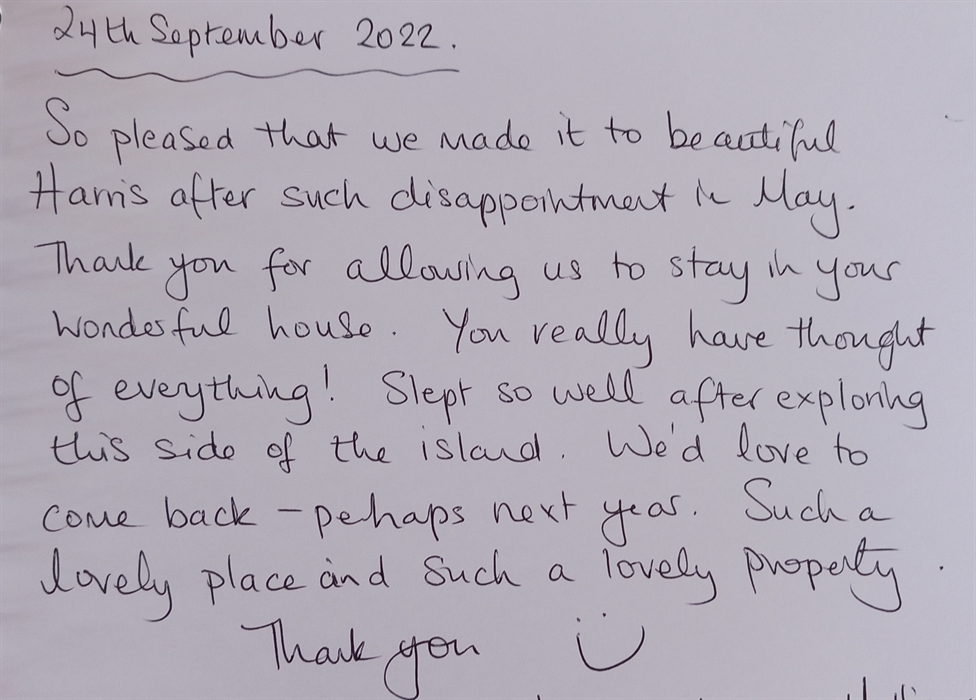 24th September 2022.
So pleased that we made it to beautiful
Harris after such disappointment in May.
Thank you for allowing us to stay in your
wonderful house. You really have thought
of everything! Slept so well after exploring
this side of the island. We'd love to
come back - perhaps next year. Such a
lovely place and such a lovely property.
Thank you